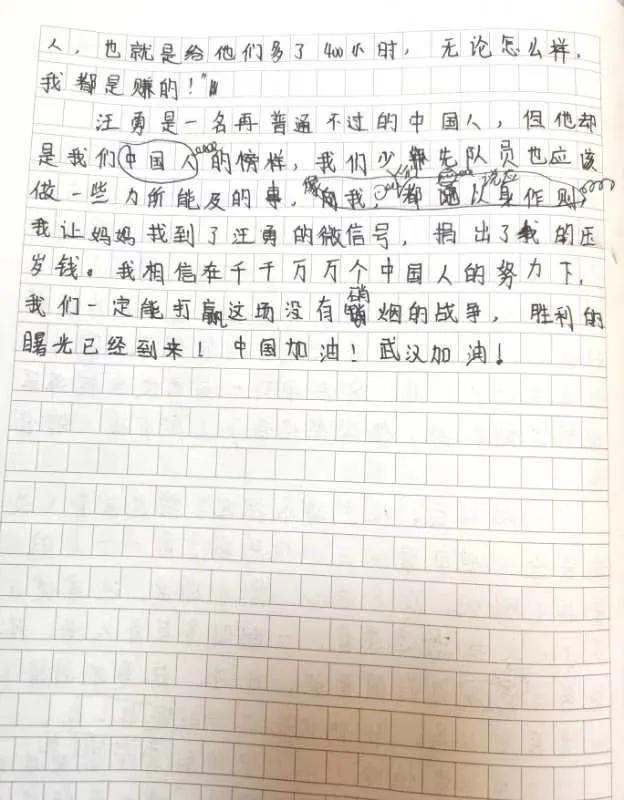 人，也就是给他们多了400小时，无论怎么样，
我都是赚的！"
汪勇是一名再普通不过的中国人，但他却
是我们中国人的榜样，我们少先队员也应该
做一些力所能及的事，我，都以身作则
我让妈妈找到了汪勇的微信号，捐出了我的压
岁钱。我相信在千千万万个中国人的努力下，
我们一定能打赢这场没有硝烟的战争，胜利的
曙光已经到来！中国加油！武汉加油！